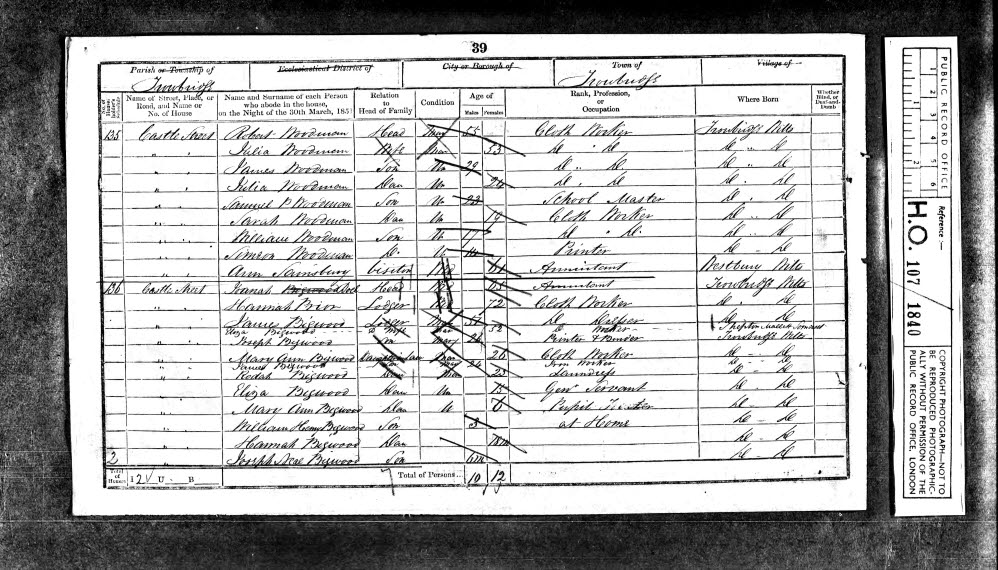 39
Parish or Township of
Ecclesiastical District of
City or Borough of
Town of
Village of
Trowbridge
Trowbridge
No. of House-holder's Schedule
Name of Street, Place, or Road, and Name or No. of House
Name and Surname of each Person who abode in the house, on the Night of the 30th March, 1851
Relation to Head of Family
Condition
Age of
Males
Females
Rank, Profession, or Occupation
Where Born
Whether Blind, or Deaf-and-Dumb
135 Castle Street Robert Woodman Head Mar 55 Cloth Worker Trowbridge Wilts
" " Julia Woodman Wife Mar 53 Do " Do Do " Do
" " James Woodman Son Un 29 Do " Do Do " Do
" " Julia Woodman Dau Un 24 Do " Do Do " Do
" " Samuel P Woodman Son Un 22 School Master Do " Do
" " Sarah Woodman Dau Un 19 Cloth Worker Do " Do
" " William Woodman Son Un 17 Do " Do Do " Do
" " Simeon Woodman Do Un Printer Do " Do
" " Ann Sainsbury Visitor 61 Annuitant Westbury Wilts
136 Castle Street Head 65 Annuitant Trowbridge Wilts
" Hannah Prior Lodger 72 Cloth Worker Do Do
" James Bigwood Lodger Do Do Do
Eliza Bigwood Wife 52 Do Worker Shepton Mallet Somerset
" Joseph Bigwood Son Mar 26 Printer & Binder Trowbridge Wilts
" Mary Ann Bigwood Daughter in law Mar 26 Cloth Worker Do Do
James Bigwood Son 24 Iron Worker Do Do
" Bigwood Mar 23 Laundress Do Do
" Eliza Bigwood Dau Un Genl Servant Do Do
" Mary Ann Bigwood Dau U Pupil Do Do
" William Henry Bigwood Son 3 at Home Do Do
" Hannah Bigwood Dau Do Do
2 " Joseph Bigwood Son 6m Do Do
Total of Houses
U B
Total of Persons
10 12
PUBLIC RECORD OFFICE
1 2 3 4 5 6
1 2
Reference :—
H.O. 107 / 1840
COPYRIGHT PHOTOGRAPH—NOT TO BE REPRODUCED PHOTOGRAPHIC-ALLY WITHOUT PERMISSION OF THE PUBLIC RECORD OFFICE, LONDON